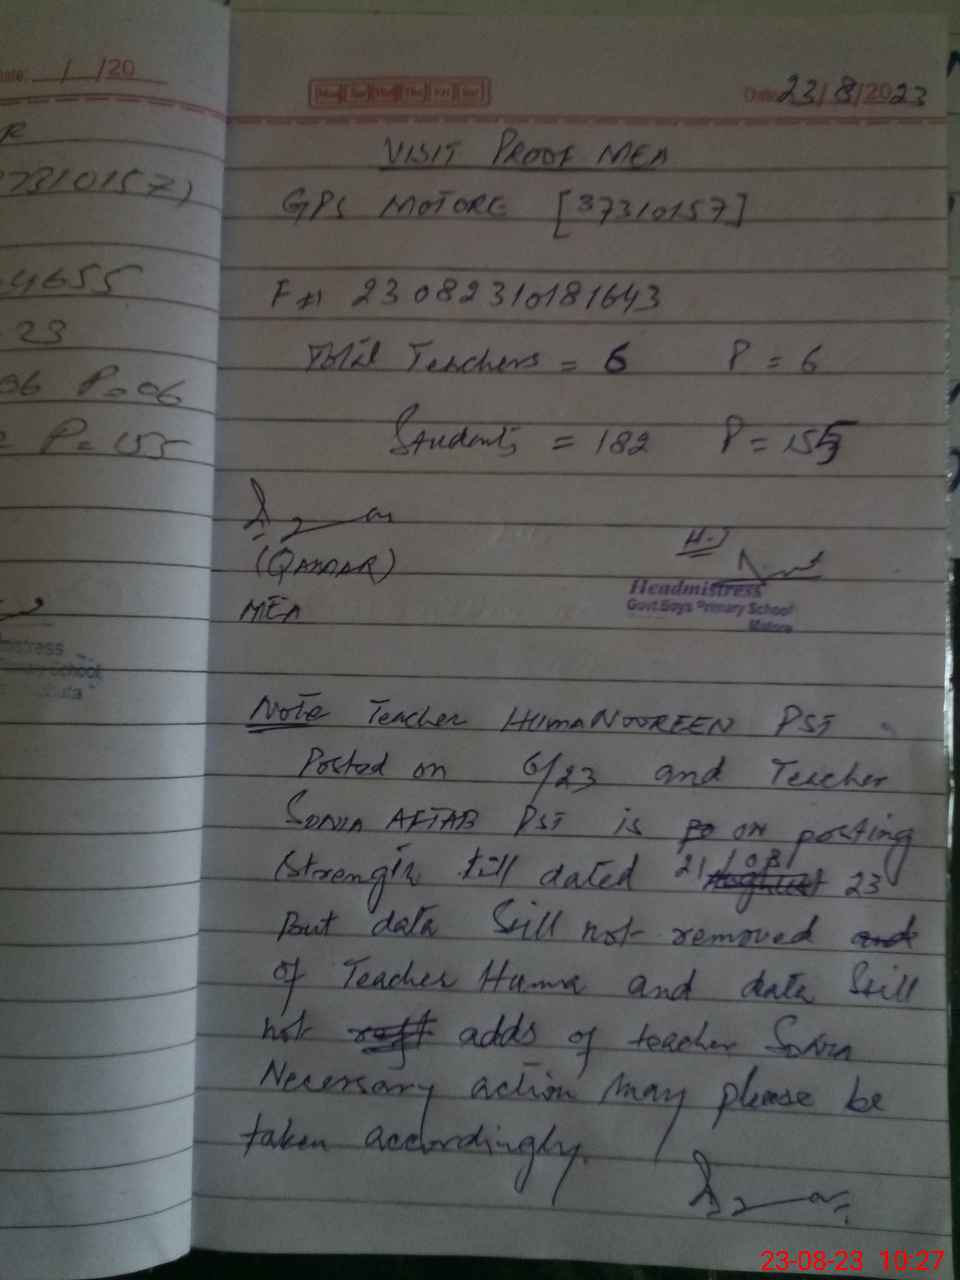 Date: / /20
R
7310157)
4655
23
06 P=06
= P=155
mistress
School
Mon Tue Wed Thu Fri Sat
Date 23/8/2023
VISIT PROOF MEA
GPS MOTORE [37310157]
F# 23082310181643
Total Teachers = 6 P = 6
Students = 182 P = 155
(QAMDAR)
MEA
H.J
Headmistress
Govt.Boys Primary School
Matore
Note Teacher HUMA NOOREEN PST
Posted on 6/23 and Teacher
SONIA AFTAB PST is on posting
Strength till dated 21/08/ 23
But data Still not removed
of Teacher Huma and data Still
not adds of teacher Sonia
Necessary action may please be
taken accordingly.
23-08-23 10:27